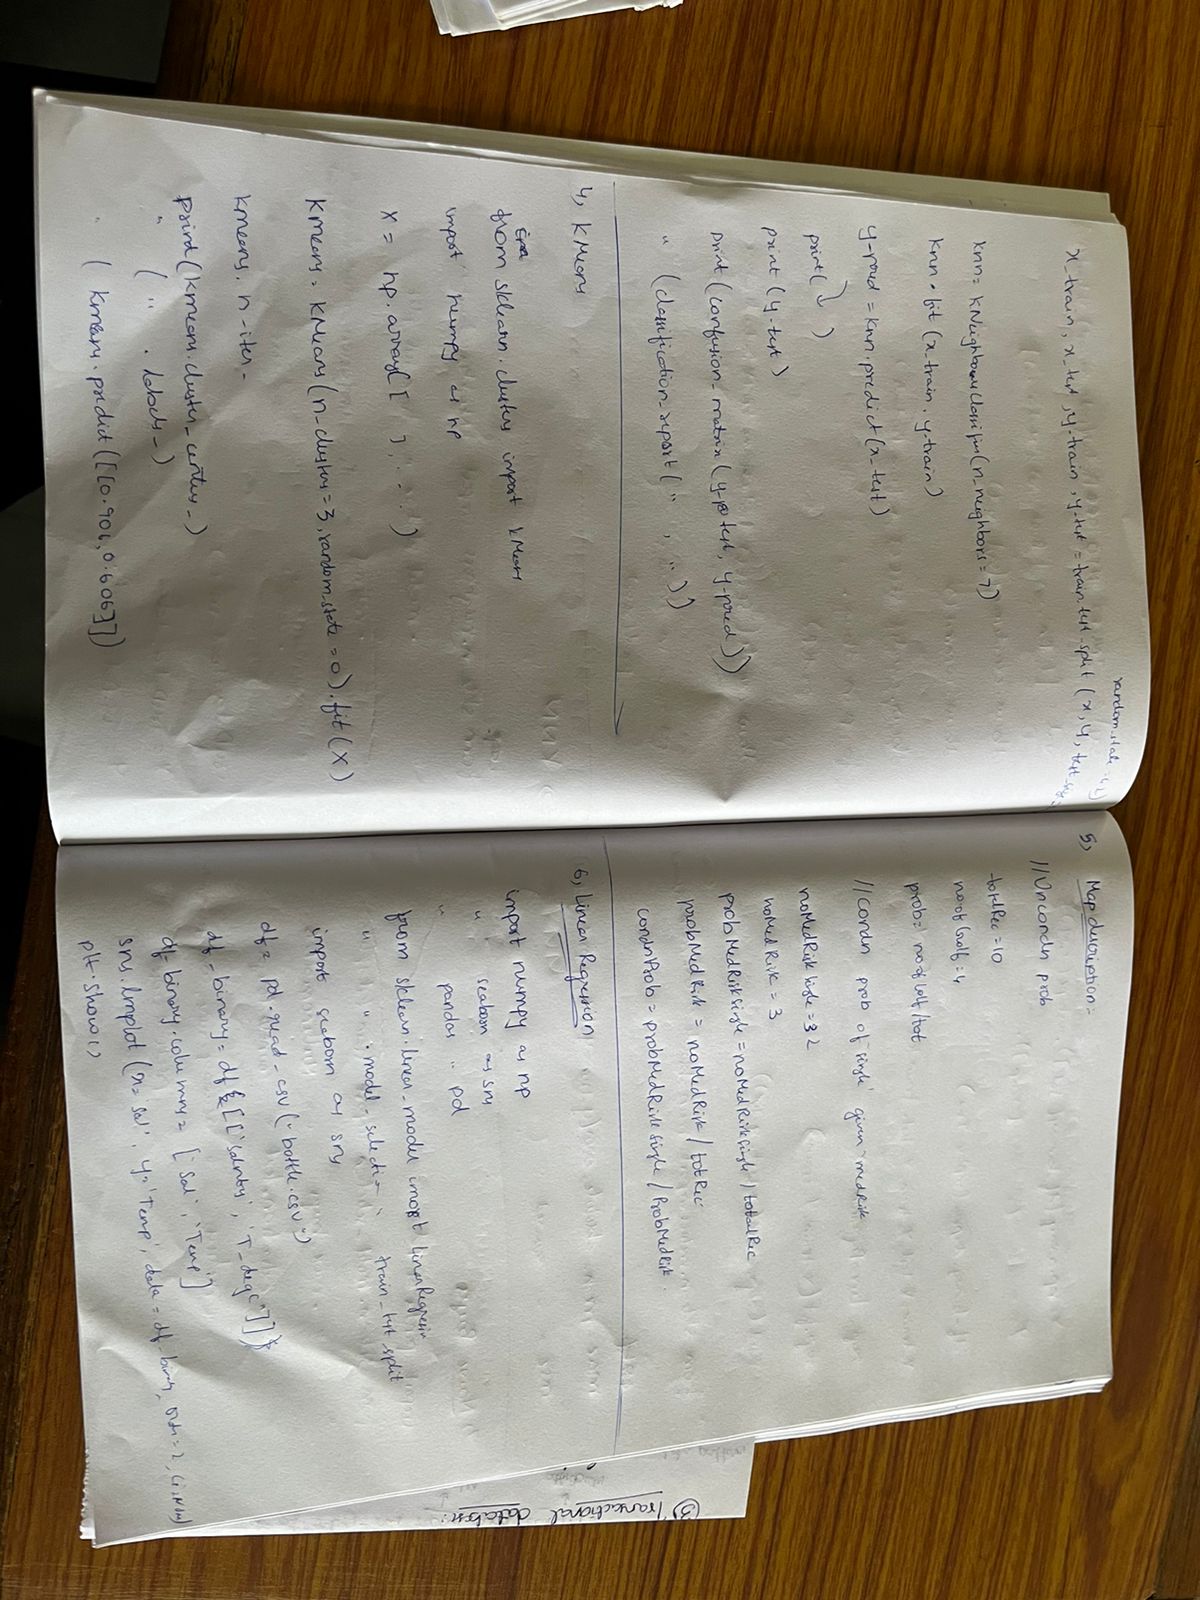 random_state = 42)
x_train, x_test, y_train, y_test = train_test_split (x, y, test_size =
knn = KNeighbourclassifier(n_neighbors = 7)
knn.fit (x_train, y_train)
y-pred = knn.predict (x_test)
print ( )
print (y_test)
print (confusion_matrix (y_test, y_pred))
" (classification_report ( " , " ))
4, KMeans
from sklearn.cluster import KMeans
import numpy as np
X = np.array([ ], . . . )
Kmeans = KMeans (n_clusters = 3, random_state = 0).fit (X)
Kmeans. n_iter_
print (kmeans.cluster_centers_)
" ( " . labels_)
" ( kmeans.predict ([[0.906, 0.606]])
5, Map
//Uncondn prob
totRec = 10
noofGolf = 4
prob = noofGolf/tot
//condn prob of 'single' given medRisk
noMedRisksingle = 2
noMedRisk = 3
probMedRisksingle = noMedRisksingle / totalRec
probMedRisk = noMedRisk / totRec
condnProb = probMedRisksingle / ProbMedRisk.
6, Linear Regression
import numpy as np
" seaborn as sns
" pandas " pd
from sklearn.linear_model import linearRegression
" " .model_selection " train_test_split
import seaborn as sns
df = pd.read_csv ("bottle.csv")
df_binary = df [['Salnty', 'T_degC']]
df_binary.columns = ['Sal', 'Temp']
sns.lmplot (x='Sal', y='Temp', data = df_binary, order = 2, ci=None)
plt.show()
③ Transactional database: